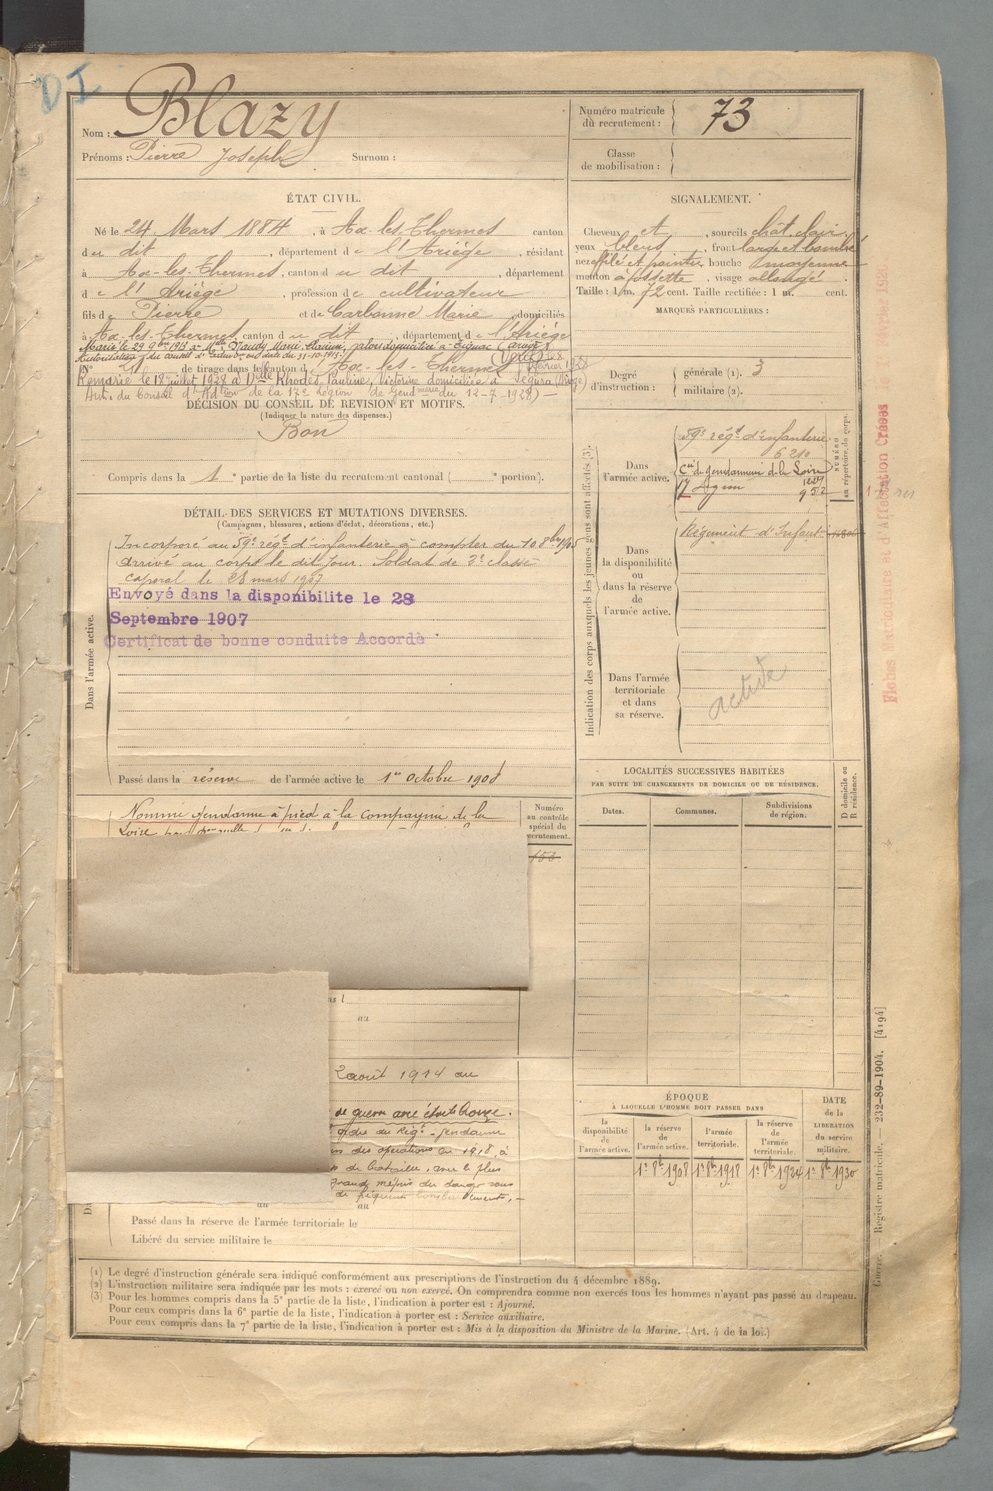 D I
Nom : Blazy
Prénoms : Pierre Joseph Surnom :
Numéro matricule
du recrutement : 73
Classe
de mobilisation :
ÉTAT CIVIL.
Né le 24 Mars 1884, à Ax-les-Thermes canton
du dit, département de l'Ariège, résidant
à Ax-les-Thermes, canton du dit, département
de l'Ariège, profession de cultivateur
fils de Pierre et de Carbonne Marie, domiciliés
à Ax-les-Thermes, canton du dit, département de l'Ariège
Marié le 29 9bre 1913 à Marie
du conseil d' en date du 31-10-1913
N° 21 de tirage dans le canton d'Ax-les-Thermes
Remarié le 18 juillet 1928 à Dlle Rhodes Pauline, Victorine domiciliée à Ségura (Ariège)
Aut. du Conseil d'Adtion de la 17e Légion de Gendmerie du 12-7-1928) —
DÉCISION DU CONSEIL DE RÉVISION ET MOTIFS.
(Indiquer la nature des dispenses.)
Bon
Compris dans la 1e partie de la liste du recrutement cantonal ( e portion).
SIGNALEMENT.
Cheveux et, sourcils chât. clair
yeux bleus, front large et bombé
nez effilé et pointu, bouche moyenne
menton à fossette, visage allongé
Taille : 1 m. 72 cent. Taille rectifiée : 1 m. cent.
MARQUES PARTICULIÈRES :
Degré
d'instruction :
générale (1). 3
militaire (2).
DÉTAIL DES SERVICES ET MUTATIONS DIVERSES.
(Campagnes, blessures, actions d'éclat, décorations, etc.)
Dans l'armée active.
Incorporé au 59e régt d'infanterie à compter du 10 8bre 1905
arrivé au corps le dit jour. Soldat de 2e classe
caporal le 28 mars 1907
Envoyé dans la disponibilite le 28
Septembre 1907
Certificat de bonne conduite Accordé
Passé dans la réserve de l'armée active le 1er Octobre 1908
Indication des corps auxquels les jeunes gens sont affectés (3).
NUMÉRO
au répertoire du corps.
Dans
l'armée active.
59e régt d'infanterie
6210
Cie de gendarmerie de la Loire
17 Agen 952
Dans
la disponibilité
ou
dans la réserve
de
l'armée active.
Régiment d'Infant.
Dans l'armée
territoriale
et dans
sa réserve.
active
Fiches Matriculaire et d'Affectation Créées
Nommé gendarme à pied à la Compagnie de la
Loire
Numéro
au contrôle
spécial du
recrutement.
au
2 août 1914 au
de guerre avec étoile bronze.
ordre du Régt - gendarme
des opérations en 1918, à
de , avec le plus
grand mépris du danger sous
de
au
Passé dans la réserve de l'armée territoriale le
Libéré du service militaire le
LOCALITÉS SUCCESSIVES HABITÉES
PAR SUITE DE CHANGEMENTS DE DOMICILE OU DE RÉSIDENCE.
Dates. Communes. Subdivisions
de région.
D domicile ou
R résidence.
ÉPOQUE
À LAQUELLE L'HOMME DOIT PASSER DANS
la
disponibilité
de
l'armée active.
la réserve
de
l'armée active.
l'armée
territoriale.
la réserve
de
l'armée
territoriale.
DATE
de la
LIBÉRATION
du service
militaire.
1er 8bre 1908 1er 8bre 1918 1er 8bre 1924 1er 8bre 1930
Guerre. Registre matricule. — 232-89-1904. [4194]
(1) Le degré d'instruction générale sera indiqué conformément aux prescriptions de l'instruction du 4 décembre 1889.
(2) L'instruction militaire sera indiquée par les mots : exercé ou non exercé. On comprendra comme non exercés tous les hommes n'ayant pas passé au drapeau.
(3) Pour les hommes compris dans la 5e partie de la liste, l'indication à porter est : Ajourné.
Pour ceux compris dans la 6e partie de la liste, l'indication à porter est : Service auxiliaire.
Pour ceux compris dans la 7e partie de la liste, l'indication à porter est : Mis à la disposition du Ministre de la Marine. (Art. 4 de la loi.)